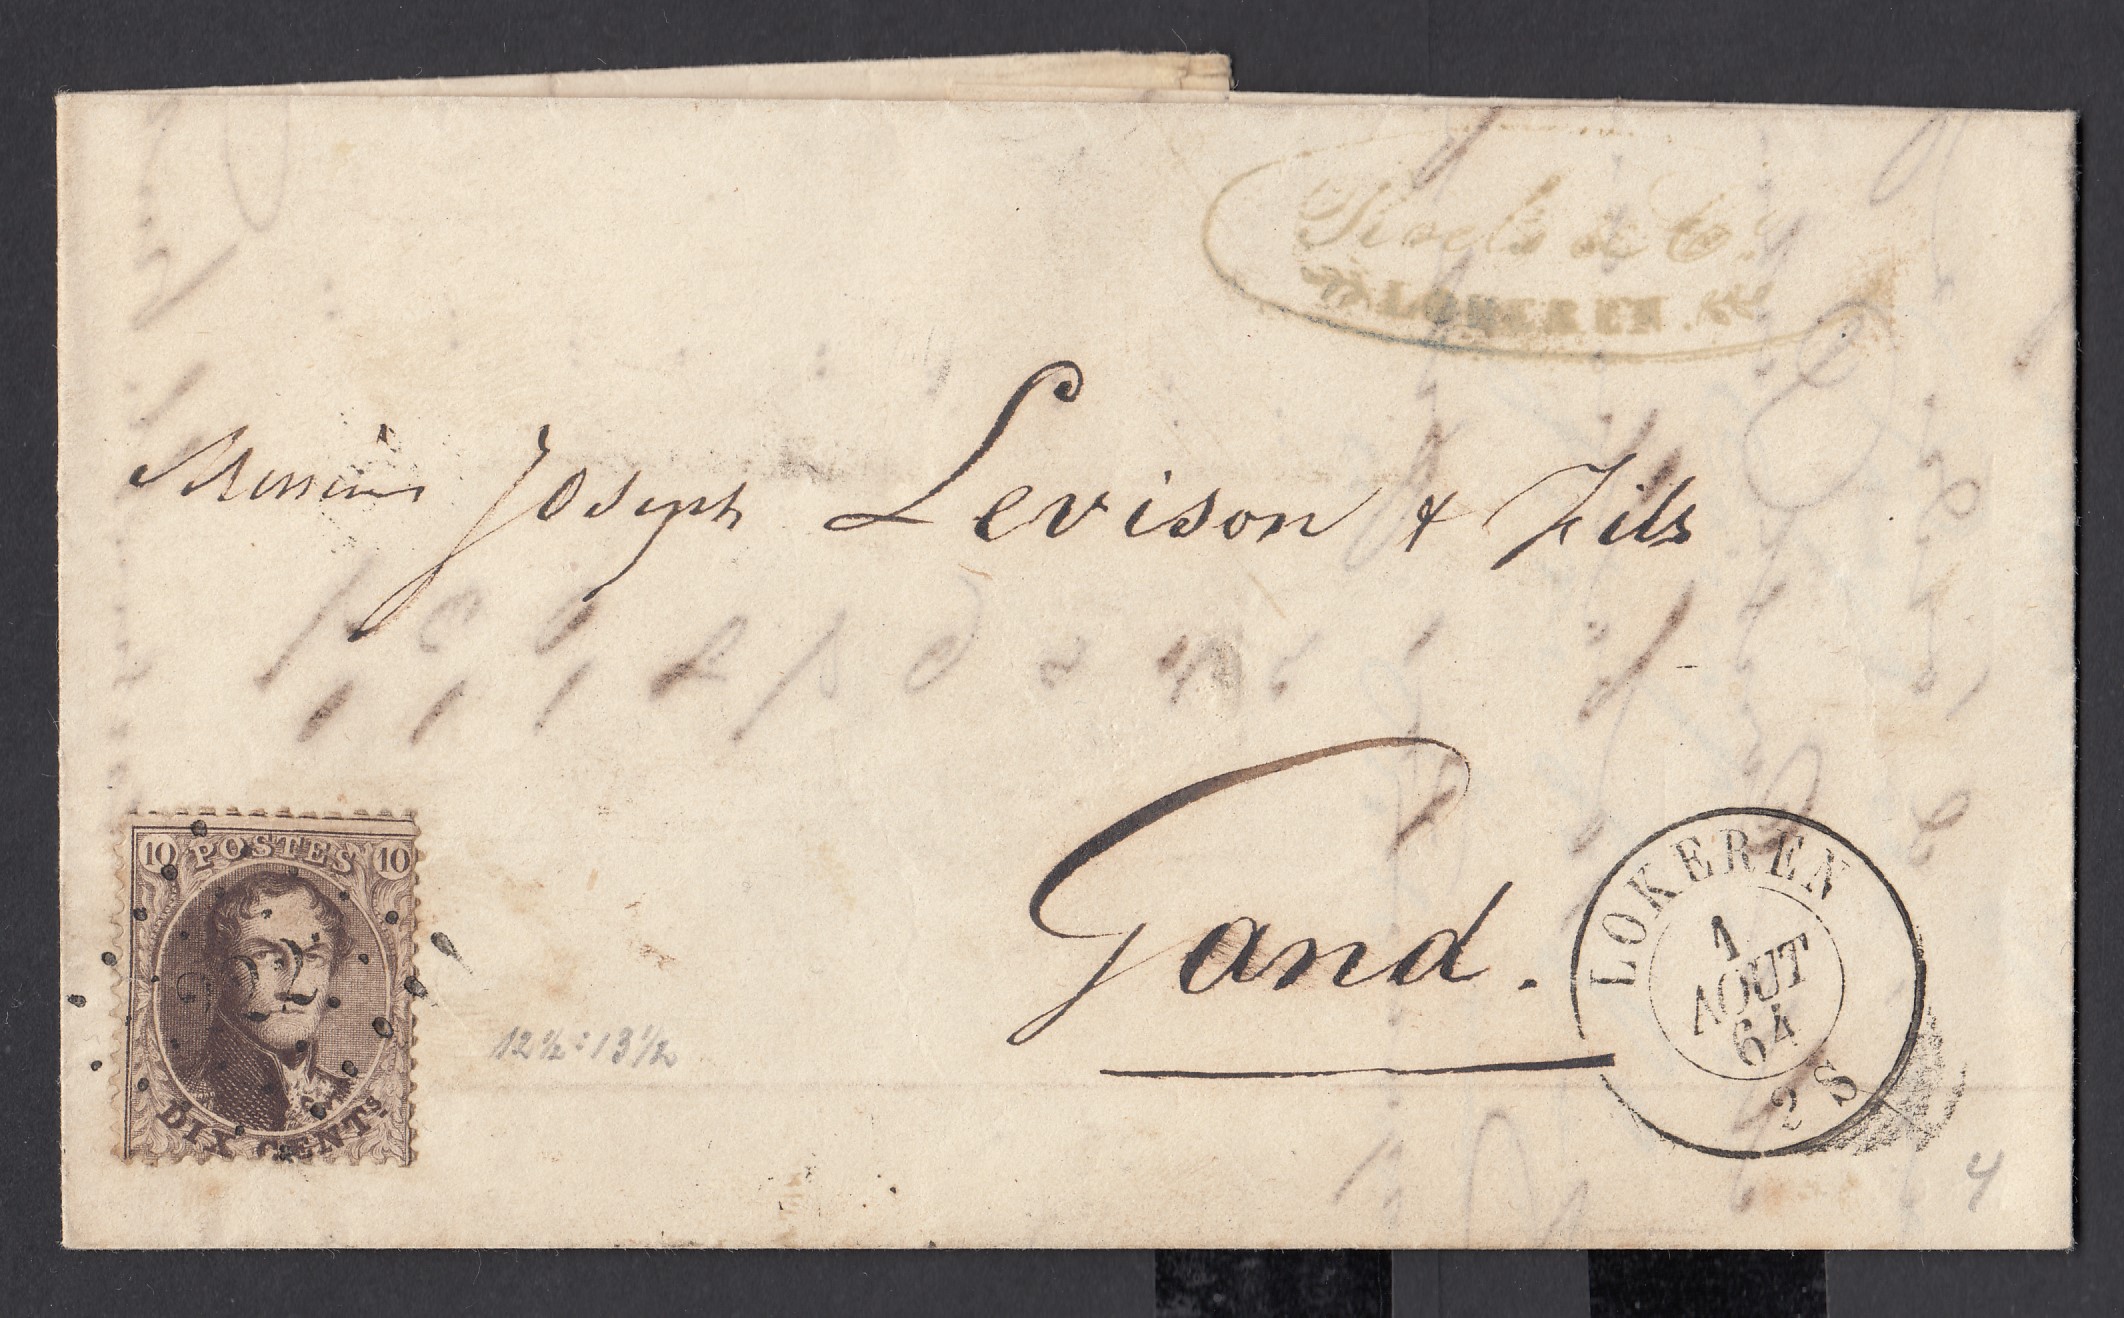 & Co.
LOKEREN
Messieurs Joseph Levison & Fils
Gand.
10 POSTES 10
DIX CENTS.
12 ½ : 13 ½
LOKEREN
1
AOUT
64
2 S
4